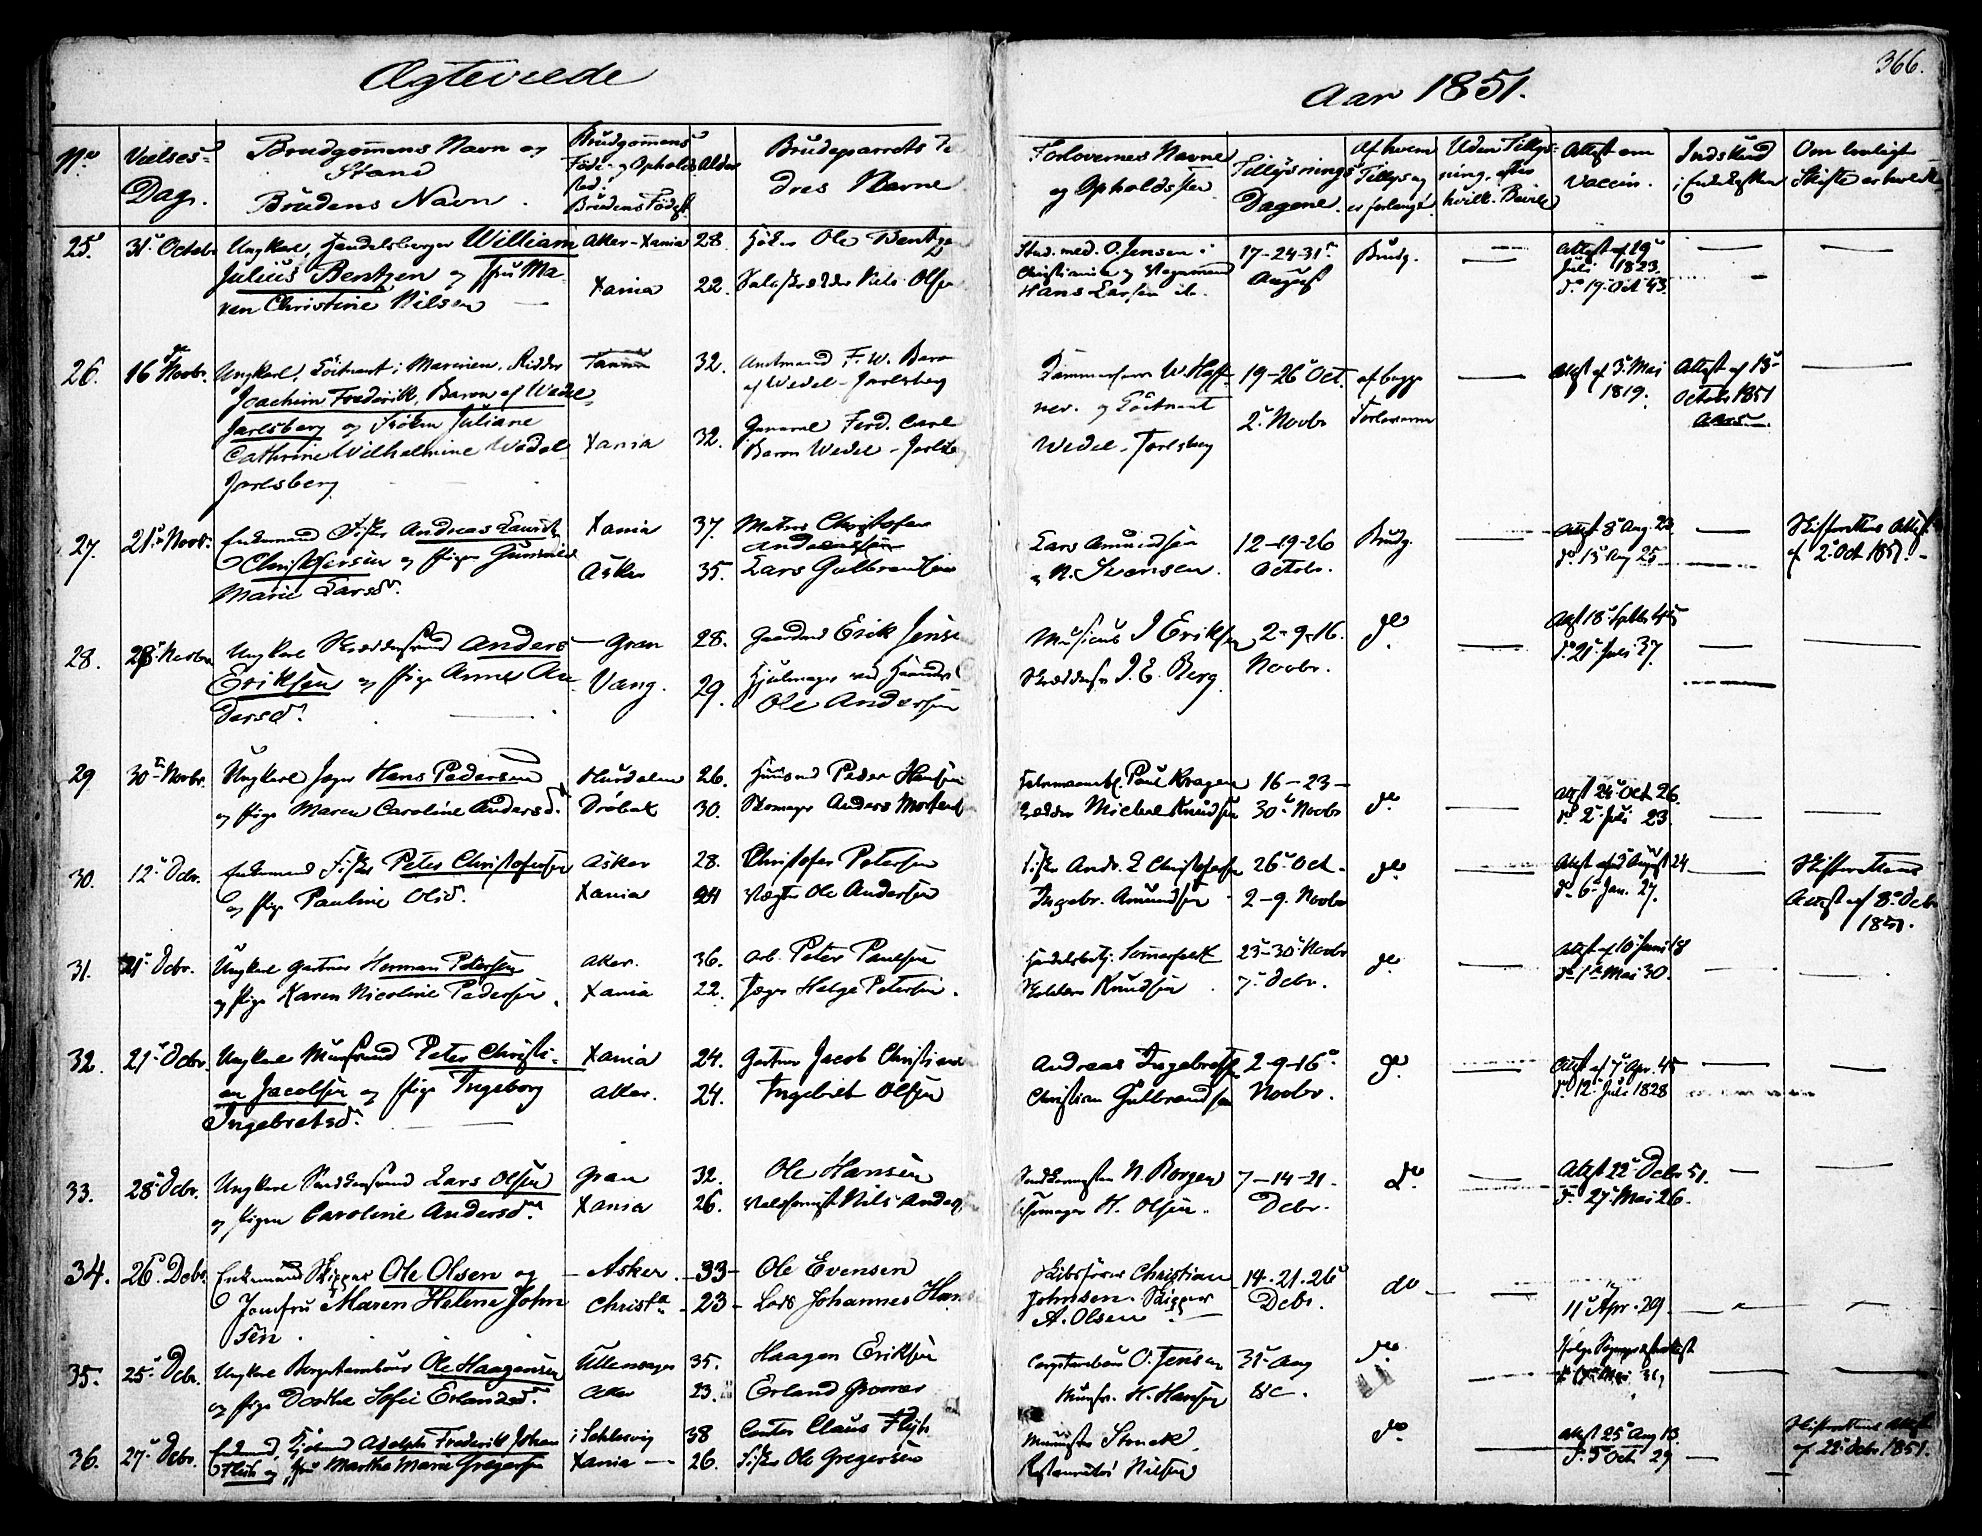 Ægteviede
Aar 1851.
366.
No
Vielses-
Dag.
Brudgommens Navn og
Stand
Brudens Navn.
Brudgommens
Føde- og Opholds
sted.
Brudens Fødest.
Alder
Brudeparrets Fæ
dres Navne
Forlovernes Navne
og Opholdssted
Tillysnings
Dagene.
Af hvem
Tillysng
er forlangt.
Uden Tillys-
ning, efter
hvilk. Bevill.
Attest om
Vaccin.
Indskud
i Enkekassen
Om lovligt
Skifte er holdt
25.
31 Octobr
Ungkarl, Handelsborger William
Julius Bentzen og Jfru Ma-
ren Christine Nilsen
Aker-Xania
Xania
28.
22.
Ole Bentzen
Nils Olsen
Stud. med. O. Jensen i
Christiania og
Hans Larsen ib.
17-24-31
August
Brudg.
Attest af 19
Juli 1823.
do 19 Oct 43.
26.
16 Novbr.
Ungkarl, Løitnant i Marinen, Ridder
Joachim Frederik, Baron af Wedel-
Jarlsberg og Frøken Juliane
Cathrine Wilhelmine Wedel
Jarlsberg
Xania
32.
32.
Amtmand F. W. Baron
af Wedel-Jarlsberg
General Ferd. Carl
Baron Wedel-Jarlsb
Kammerherre W. Haff-
ner. og Løitnant
Wedel-Jarlsberg
19-26 Oct.
2 Novbr
af begge
Forloverne
Attest af 3 Mai
1819.
Attest af 13
October 1851
27.
21 Novbr.
Enkemand Fisker Andreas Laurits
Christofersen og Pigen Gunnild
Marie Larsd.
Xania
Asker
37.
35.
Matros Christofer
Andersen
Lars Gulbrandsen
Lars Amundsen
N. Svensen.
12-19-26
Octobr.
Brudg.
Attest 8 Aug 22
do 15 Aug 25
Skifterettens Attest
af 2 Oct 1851.
28.
28 Novbr
Ungkarl Skreddersvend Anders
Eriksen og Pige Anne An-
dersd.
Gran
Vang.
28.
29.
Gaardmd Erik Jensen
Hjulmager
Ole Andersen
Musicus J Eriksen
Skreddersv J. E. Berg
2-9-16.
Novbr.
do
Attest 18 Septbr 45
do 21 Juli 37.
29
30 Novbr.
Ungkarl Jæger Hans Pedersen
og Pige Maren Caroline Andersd.
Hurdalen
Drøbak
26.
30.
Huusmd Peder Hansen
Skomager Anders Mortens
Paul Kragen
Michael Knudsen
16-23-
30 Novbr
do
Attest 24 Oct 26.
do 2 Juli 23.
30.
12 Decbr.
Enkemand Fisker Peter Christofersen
og Pige Pauline Olsd.
Asker
Xania
28.
24
Christofer Petersen
Vægter Ole Andersen
Fisker Andr. L Christofersen
Ingebr. Amundsen
26 Oct.
2-9. Novbr
do
Attest af August 24
do 6 Jan. 27.
Skifterettens
Attest af 8 Decbr
1851.
31.
21 Decbr.
Ungkarl Gartner Herman Petersen
og Pige Karen Nicoline Pedersen.
Aker.
Xania
36.
22.
Arb. Peter Paulsen
Jæger Helge Petersen.
Handelsbetj. Sommerfeldt
Knudsen
23-30 Novbr
7 Decbr.
do
Attest af 10 Juni 18
do 1 Mai 30.
32.
21 Decbr
Ungkarl Muursvend Peter Christi-
an Jacobsen og Pige Ingeborg
Ingebretsd.
Xania
Aker.
24.
24.
Gartner Jacob Christians
Ingebret Olsen
Andreas Ingebretsen
Christian Gulbrandsen
2-9-16
Novbr.
do
Attest af 7 Apr. 45
do 12 Juli 1828
33.
28 Decbr.
Ungkarl Snedkersvend Lars Olsen
og Pigen Caroline Andersd.
Gran
Xania
32.
26.
Ole Hansen
Nils Anders
Snedkermester N Borgen
H. Olsen.
7-14-21.
Decbr.
do
Attest 22 Decbr 51.
do 27 Mai 26.
34.
26 Decbr.
Enkemand Skipper Ole Olsen og
Jomfru Maren Helene John
sen.
Asker.
Christa
33
23
Ole Evensen
Lods Johannes Hans
Skibsfører Christian
Johnsen. Skipper
A. Olsen
14.21.26
Decbr.
do
11 Apr. 29.
35.
25 Decbr.
Ungkarl Ole Haagensen
og Pige Dorthe Sofie Erlandsd.
Ullensager
Aker
35.
23.
Haagen Eriksen
Erland
O. Jensen
H. Hansen
31 Aug
&c.
do
36.
27 Decbr.
Enkemd, Adolph Frederik Johan
Flyh og Jfru Martha Marie Gregersen
i Schlesvig
Xania
38
26.
Claus Flyh
Fisker Ole Gregersen
Restauratør Nilsen
do
Attest 25 Aug 13
do 5 Oct 29
Skifterettens Attest
af 22 Decbr 1851.